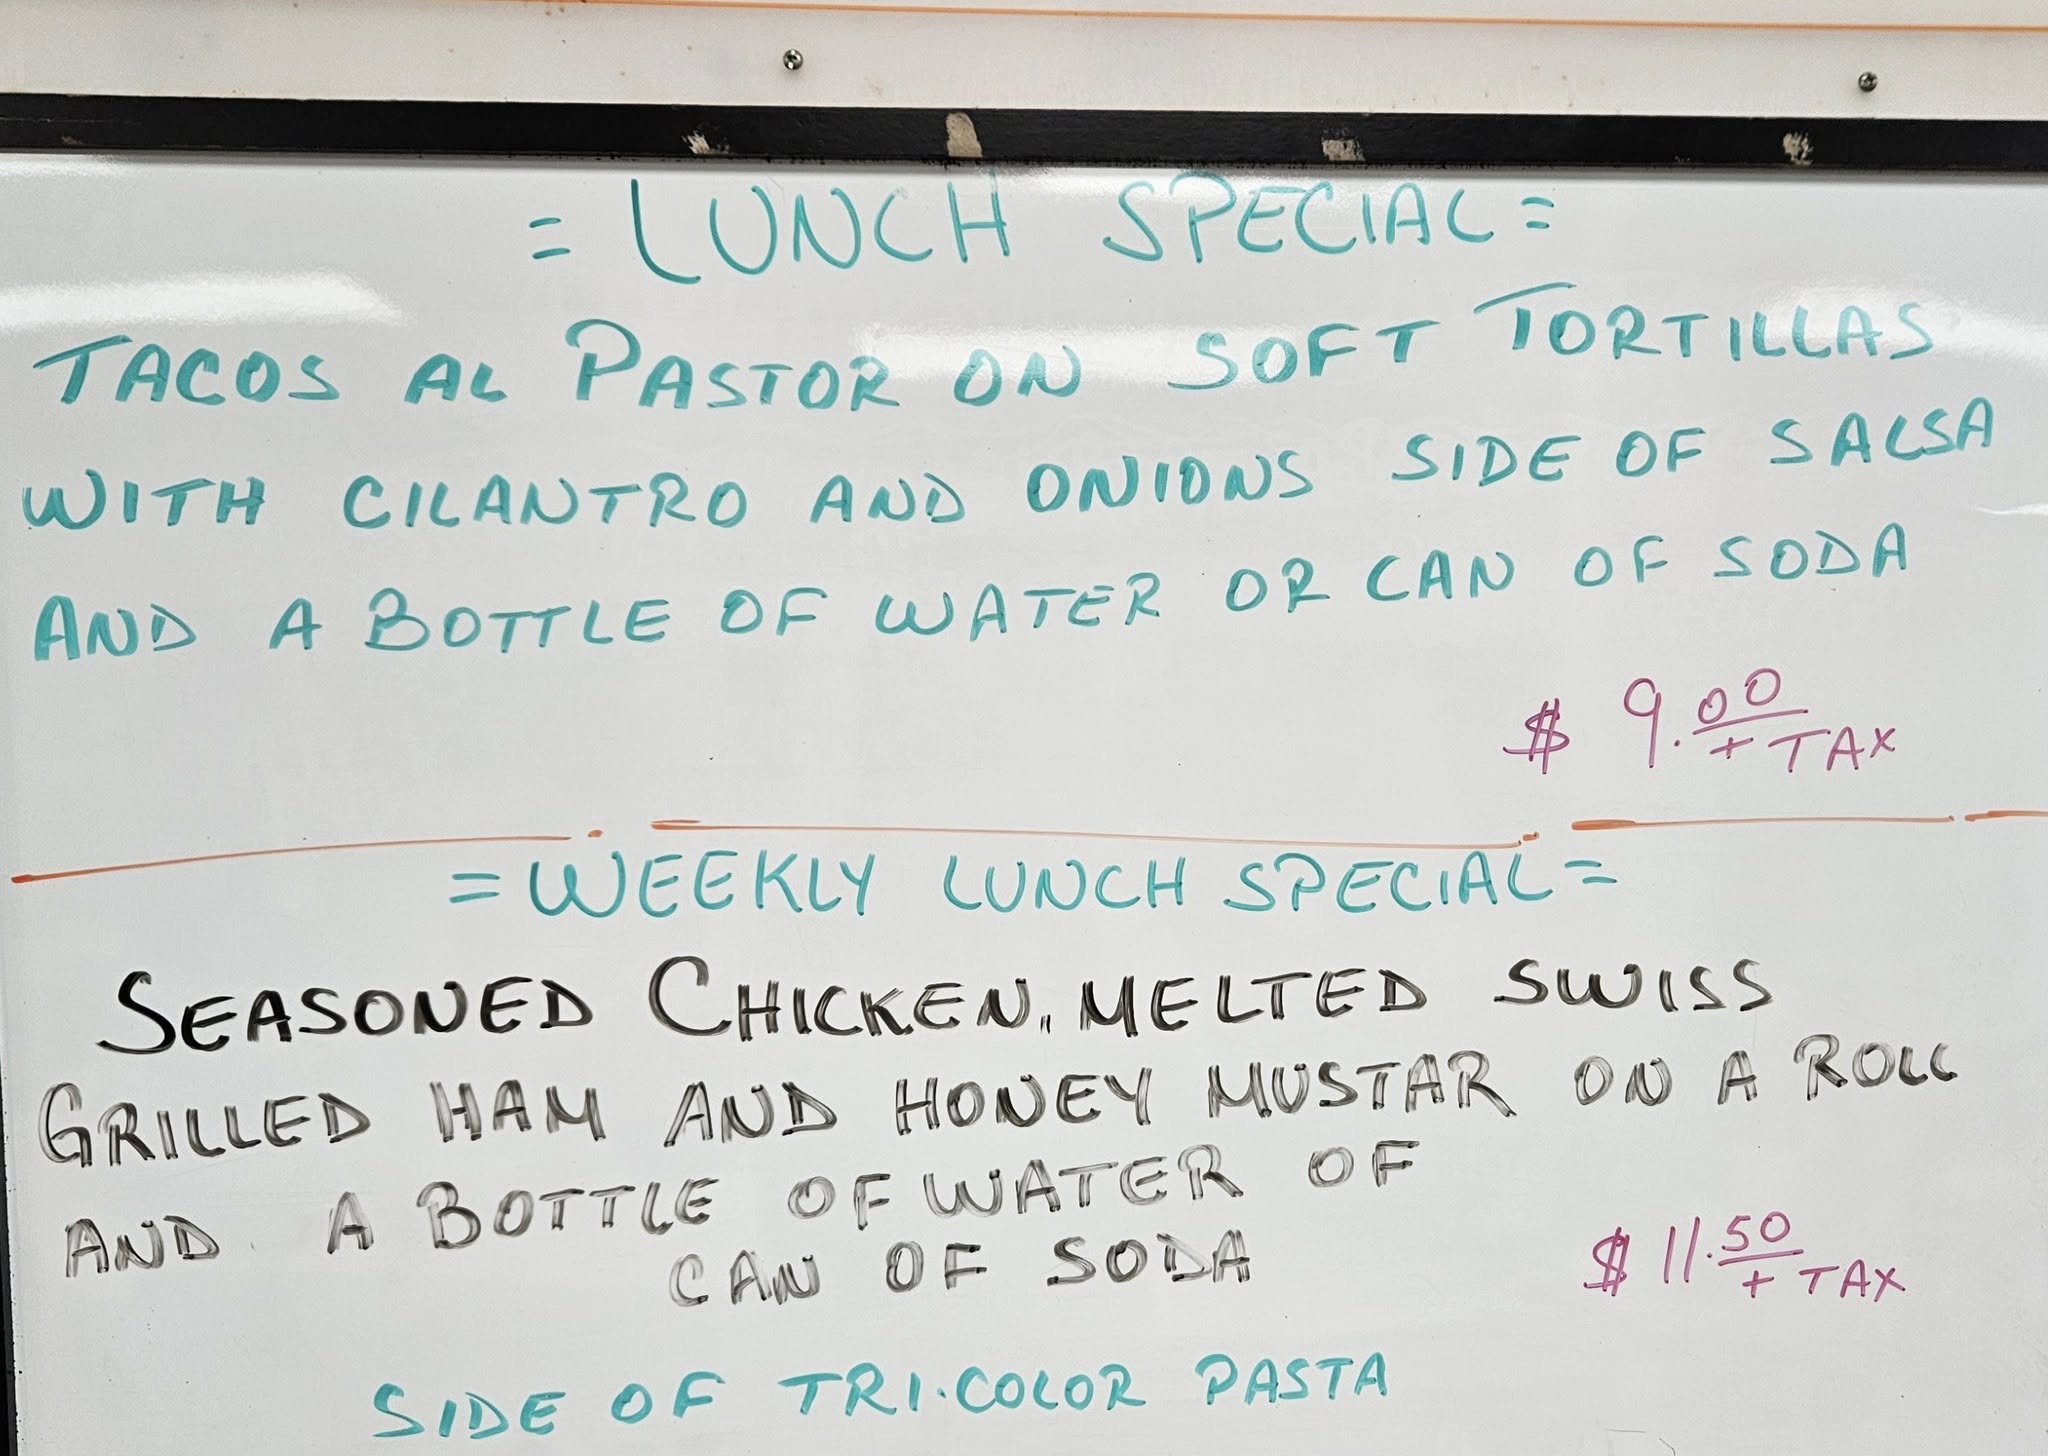 = LUNCH SPECIAL =
TACOS AL PASTOR ON SOFT TORTILLAS
WITH CILANTRO AND ONIONS SIDE OF SALSA
AND A BOTTLE OF WATER OR CAN OF SODA
$ 9.00 + TAX
= WEEKLY LUNCH SPECIAL =
SEASONED CHICKEN, MELTED SWISS
GRILLED HAM AND HONEY MUSTAR ON A ROLL
AND A BOTTLE OF WATER OF
CAN OF SODA
$ 11.50 + TAX
SIDE OF TRI.COLOR PASTA